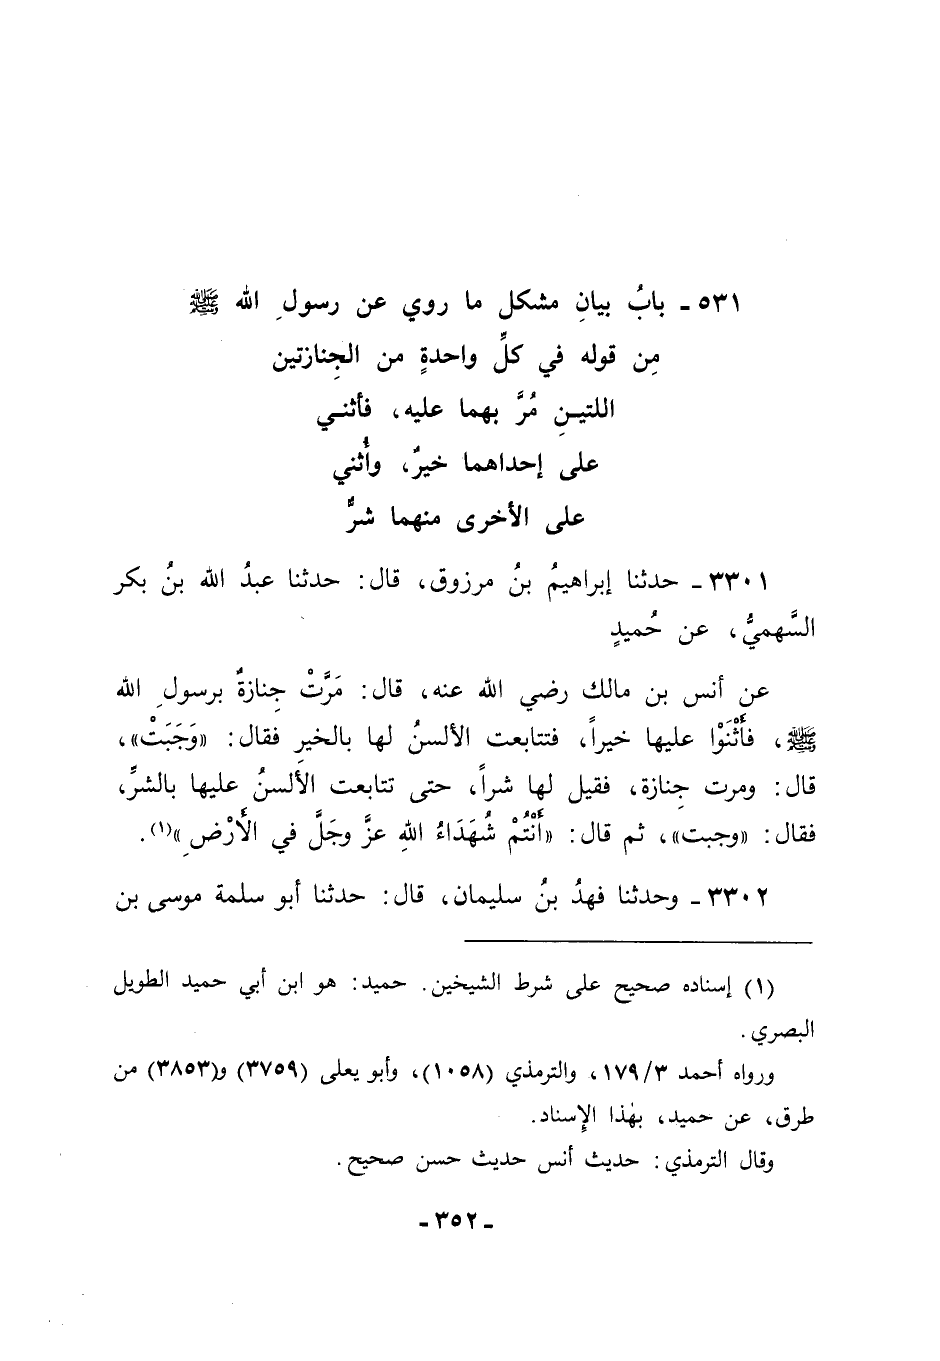 ٥٣١ - بابُ بيانِ مشكل ما روي عن رسولِ الله ﷺ
مِن قوله في كلِّ واحدةٍ من الجِنازتين
اللتيـنِ مُرَّ بهما عليه، فأثنـي
على إحداهما خيرٌ، وأُثني
على الأخرى منهما شرٌّ
٣٣٠١ - حدثنا إبراهيمُ بنُ مرزوق، قال: حدثنا عبدُ الله بنُ بكر
السَّهميُّ، عن حُميدٍ
عن أنس بن مالك رضي الله عنه، قال: مَرَّتْ جِنازةٌ برسولِ الله
ﷺ، فأَثْنَوْا عليها خيراً، فتتابعت الألسنُ لها بالخيرِ فقال: «وَجَبَتْ»،
قال: ومرت جِنازة، فقيل لها شراً، حتى تتابعت الألسنُ عليها بالشرِّ،
فقال: «وجبت»، ثم قال: «أَنْتُمْ شُهَدَاءُ اللهِ عزَّ وجَلَّ في الأَرْضِ»(١).
٣٣٠٢ - وحدثنا فهدُ بنُ سليمان، قال: حدثنا أبو سلمة موسى بن
(١) إسناده صحيح على شرط الشيخين. حميد: هو ابن أبي حميد الطويل
البصري.
ورواه أحمد ١٧٩/٣، والترمذي (١٠٥٨)، وأبو يعلى (٣٧٥٩) و(٣٨٥٣) من
طرق، عن حميد، بهٰذا الإِسناد.
وقال الترمذي: حديث أنس حديث حسن صحيح.
- ٣٥٢ -